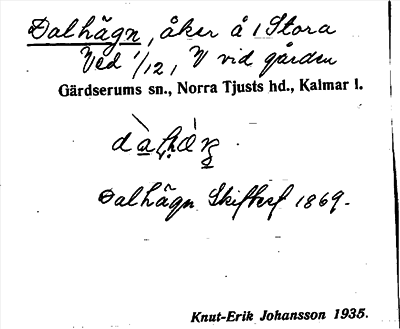 Dalhägn, åker å 1 Stora
Ved 1/12, V vid gården
Gärdserums sn., Norra Tjusts hd., Kalmar l.
Dalhägn Skifteskf 1869.
Knut-Erik Johansson 1935.